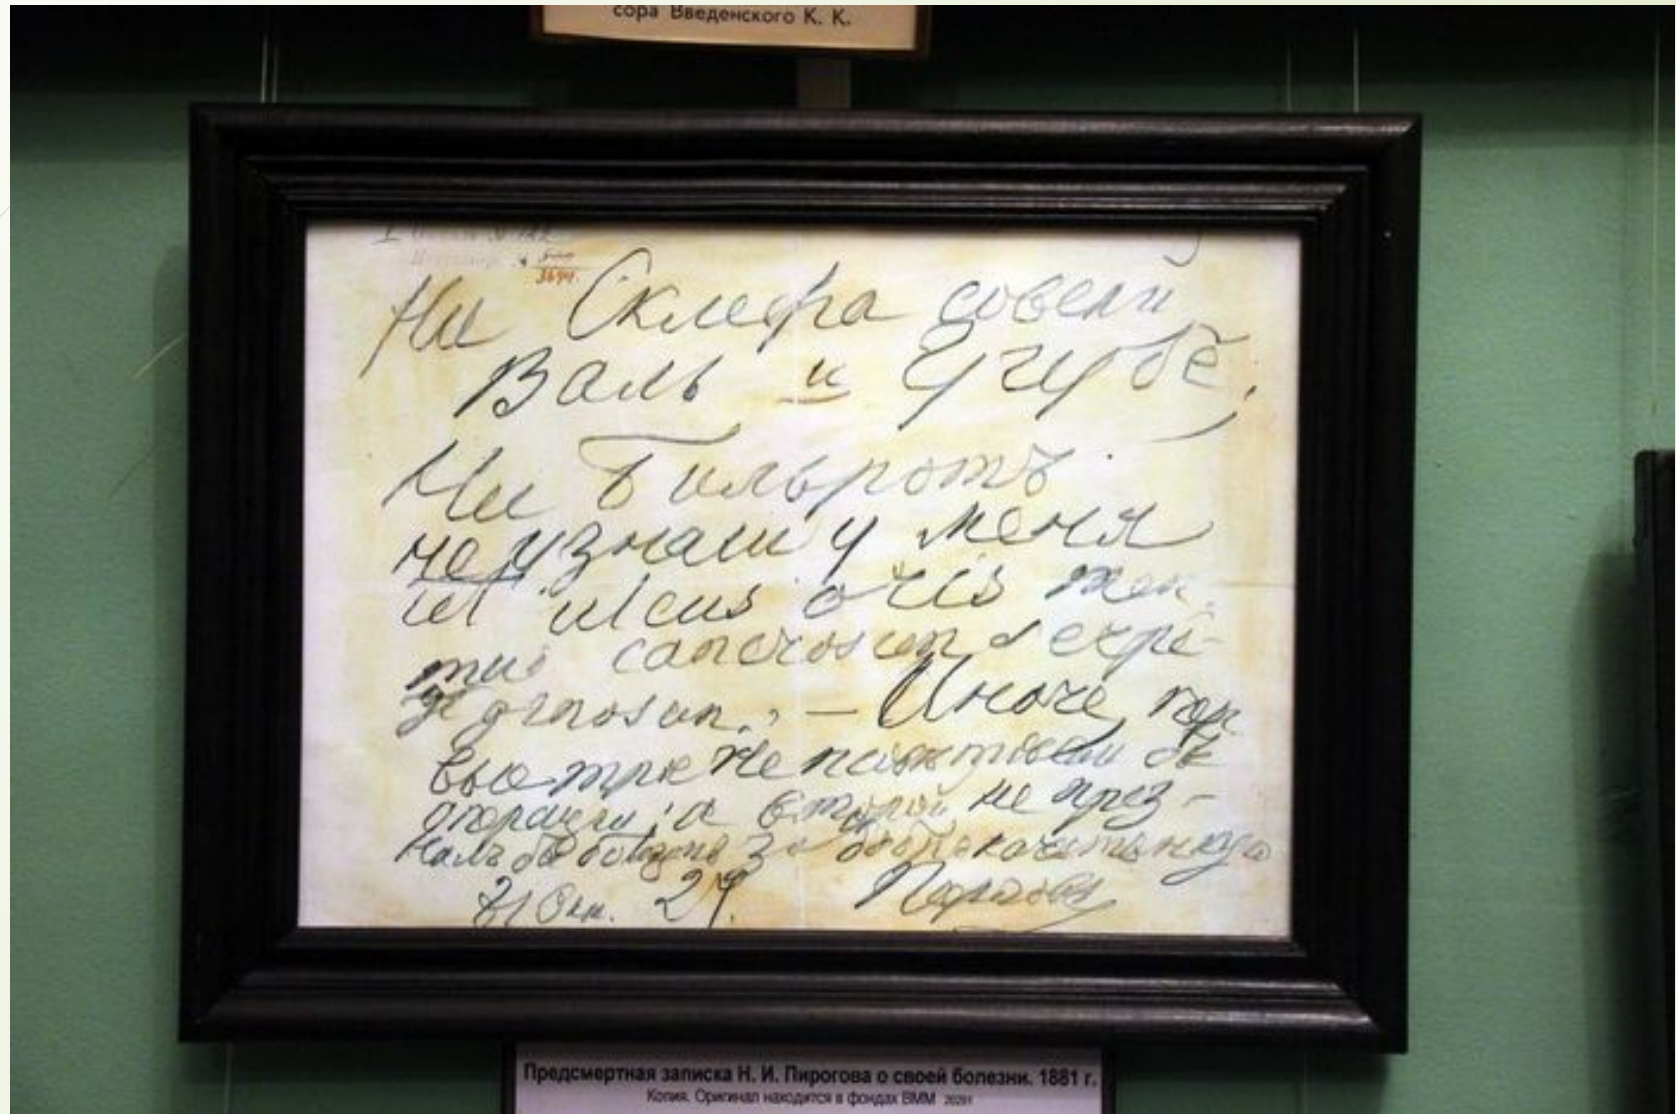 сора Введенского К. К.
3694.
Ни Склефа совскi
Валь и Грубе,
Ни Бильротъ
не узнали у меня
ulcus oris men
cancrosum serpi-
ginosum. — Иначе, пер
вые три не
операцiи, а второй не приз-
налъ бы болезнь за доброкачественную
Окт. 27. Пироговъ
Предсмертная записка Н. И. Пирогова о своей болезни. 1881 г.
Копия. Оригинал находится в фондах ВММ